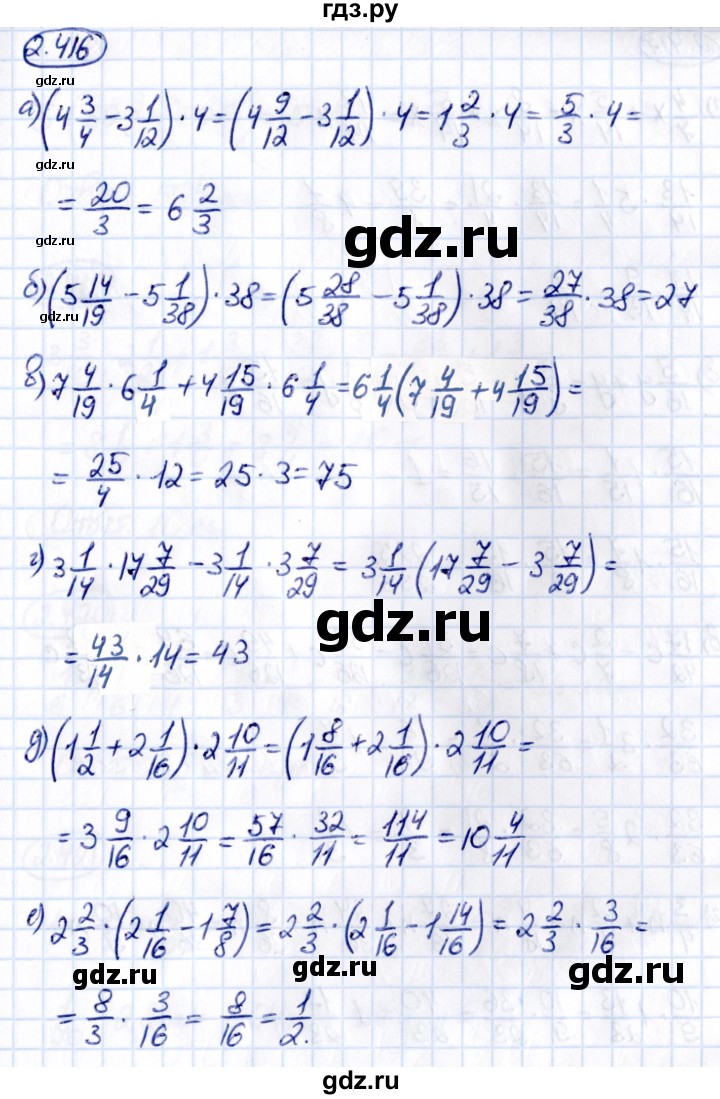 гдз.ру
2.416
gdz.ru
а) (4 3/4 − 3 1/12) · 4 = (4 9/12 − 3 1/12) · 4 = 1 2/3 · 4 = 5/3 · 4 =
gdz.ru
= 20/3 = 6 2/3
gdz.ru
gdz.ru
б) (5 14/19 − 5 1/38) · 38 = (5 28/38 − 5 1/38) · 38 = 27/38 · 38 = 27
gdz.ru
в) 7 4/19 · 6 1/4 + 4 15/19 · 6 1/4 = 6 1/4 (7 4/19 + 4 15/19) =
= 25/4 · 12 = 25 · 3 = 75
г) 3 1/14 · 17 7/29 − 3 1/14 · 3 7/29 = 3 1/14 (17 7/29 − 3 7/29) =
gdz.ru
= 43/14 · 14 = 43
д) (1 1/2 + 2 1/16) · 2 10/11 = (1 8/16 + 2 1/16) · 2 10/11 =
= 3 9/16 · 2 10/11 = 57/16 · 32/11 = 114/11 = 10 4/11
е) 2 2/3 · (2 1/16 − 1 7/8) = 2 2/3 · (2 1/16 − 1 14/16) = 2 2/3 · 3/16 =
gdz.ru gdz.ru gdz.ru
= 8/3 · 3/16 = 8/16 = 1/2.
gdz.ru